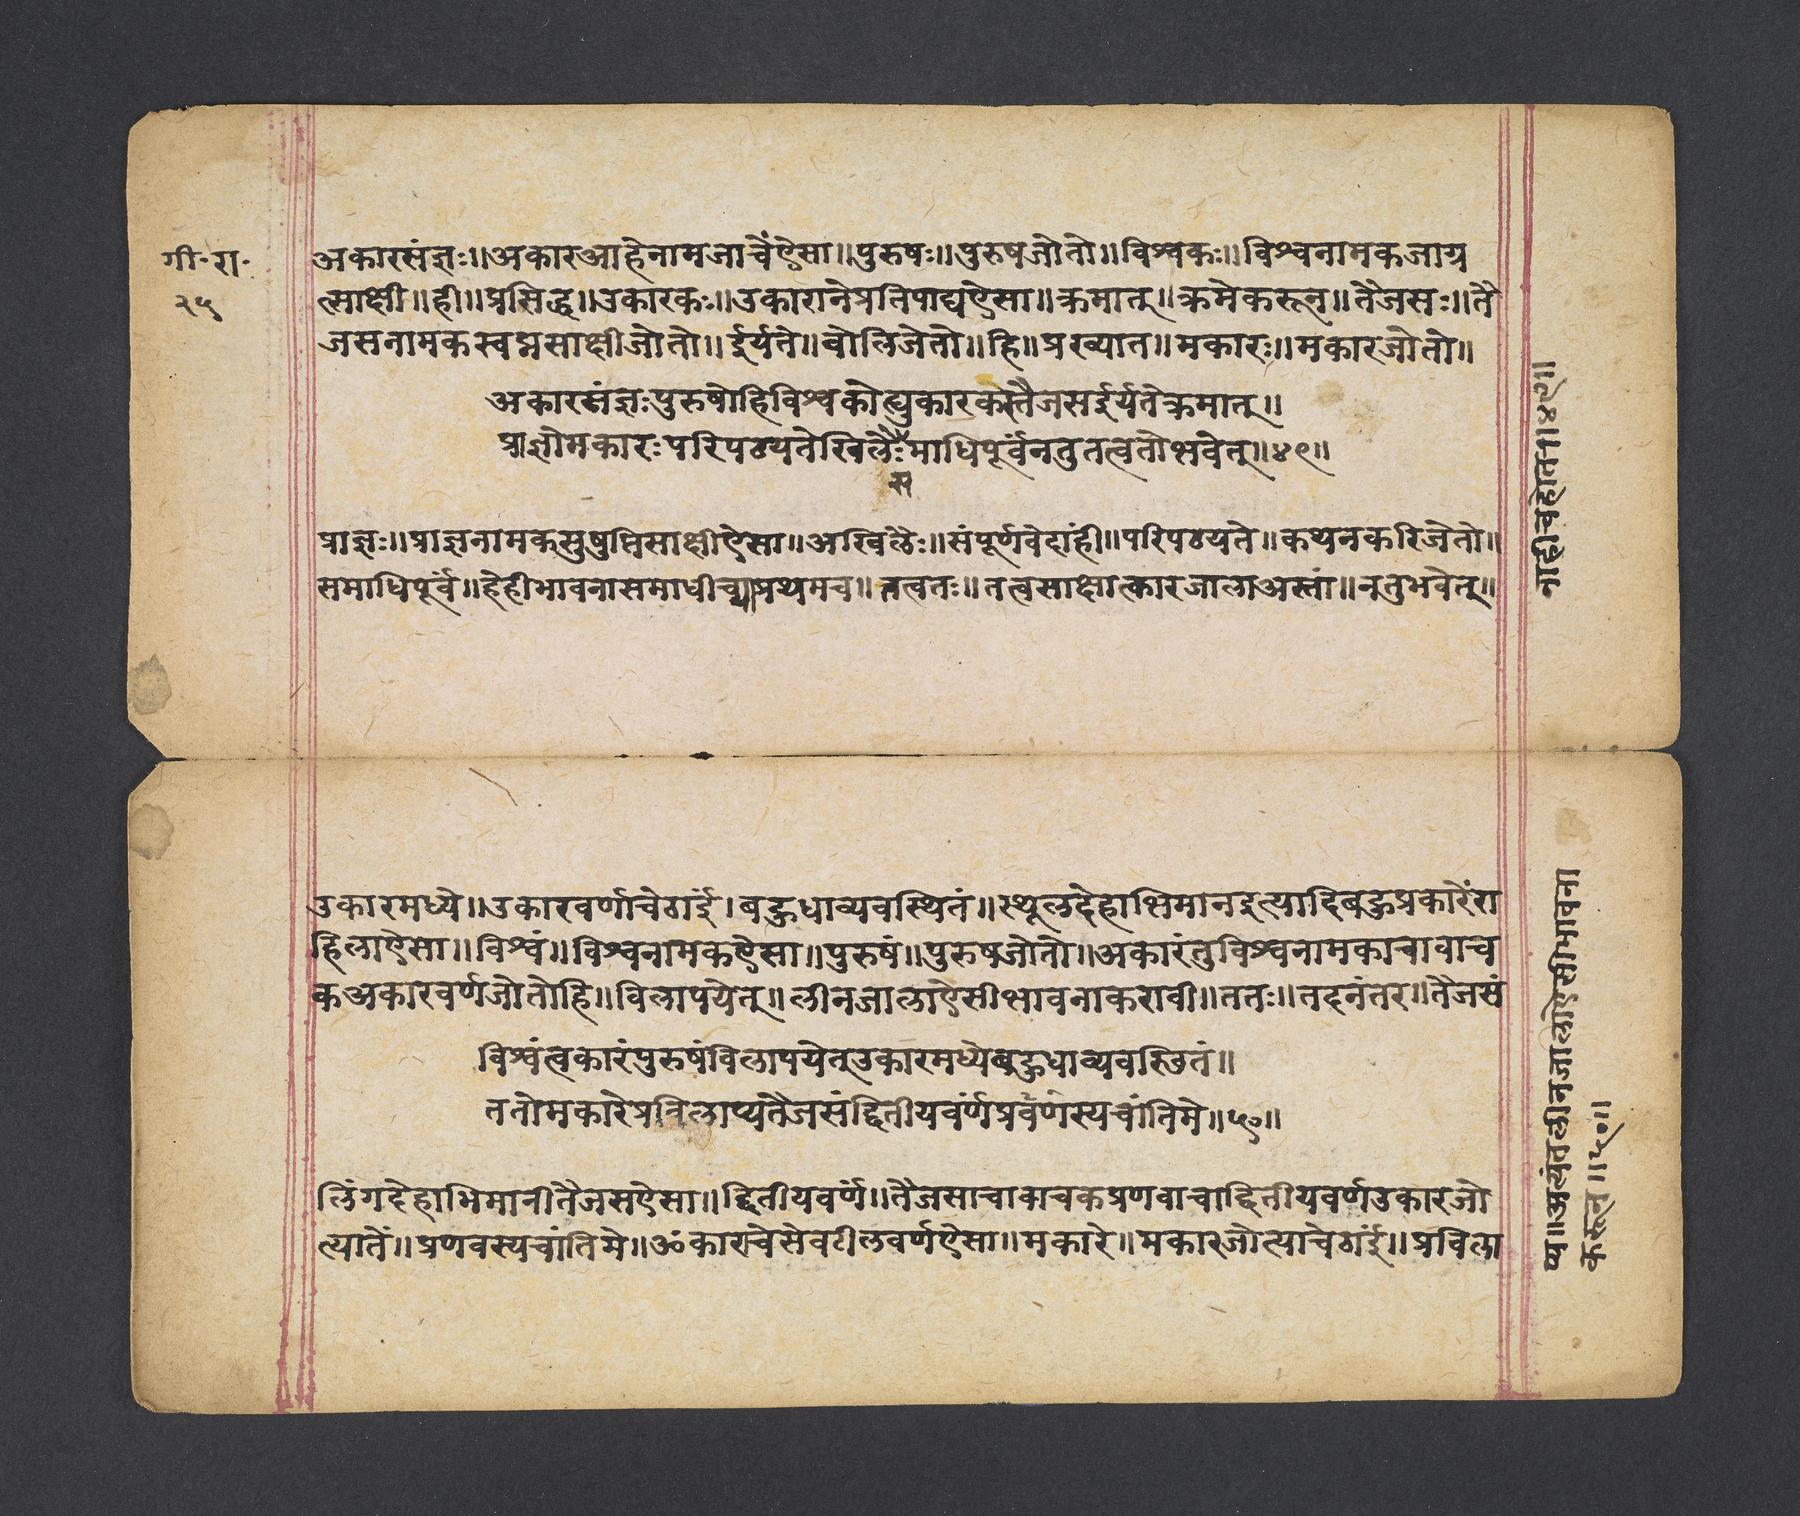 गी॰रा॰
२५
अकारसंज्ञः॥अकारआहेनामजाचेंऐसा॥पुरुषः॥पुरुषजोतो॥विश्वकः॥विश्वनामकजाग्र
त्साक्षी॥ही॥प्रसिद्ध॥उकारकः॥उकारानेप्रतिपाद्यऐसा॥क्रमात्॥क्रमेकरून॥तैजसः॥तै
जसनामकस्वप्नसाक्षीजोतो॥ईर्यते॥बोलिजेतो॥हि॥प्रख्यात॥मकारः॥मकारजोतो॥
अकारसंज्ञःपुरुषोहिविश्वकोह्युकारकस्तैजसईर्यतेक्रमात्॥
प्राज्ञोमकारःपरिपठ्यतेखिलैःमाधिपूर्वंनतुतत्वतोभवेत्॥४९॥
स
प्राज्ञः॥प्राज्ञनामकसुषुप्तिसाक्षीऐसा॥अखिलैः॥संपूर्णवेदांहीं॥परिपठयते॥कथनकरिजेतो॥
समाधिपूर्वं॥हेहीभावनासमाधीच्याप्रथमच॥तत्वतः॥तत्वसाक्षात्कारजालाअस्तां॥नतुभवेत्॥
नाहीचहोत॥४९॥
उकारमध्ये॥उकारवर्णाचेठाईं।बहुधाव्यवस्थितं॥स्थूलदेहाभिमानइत्यादिबहुप्रकारेंरा
हिलाऐसा॥विश्वं॥विश्वनामकऐसा॥पुरुषं॥पुरुषजोतो॥अकारंतुविश्वनामकाचावाच
कअकारवर्णजोतोहि॥विलापयेत्॥लीनजालाऐसीभावनाकरावी॥ततः॥तदनंतर॥तैजसं
विश्वंत्वकारंपुरुषंविलापयेत्उकारमध्येबहुधाव्यवस्थितं॥
ततोमकारेप्रविलाप्यतैजसंद्वितीयवर्णंप्रवणस्यचांतिमे॥५०॥
लिंगदेहाभिमानीतैजसऐसा॥द्वितीयवर्णं॥तैजसाचावाचकप्रणवाचाद्वितीयवर्णउकारजो
त्यातें॥प्रणवस्यचांतिमे॥ॐकाराचेसेवटीलवर्णऐसा॥मकारे॥मकारजोत्याचेठाईं॥प्रविला
प्य॥अत्यंतलीनजालाऐसीभावना
करून॥५०॥